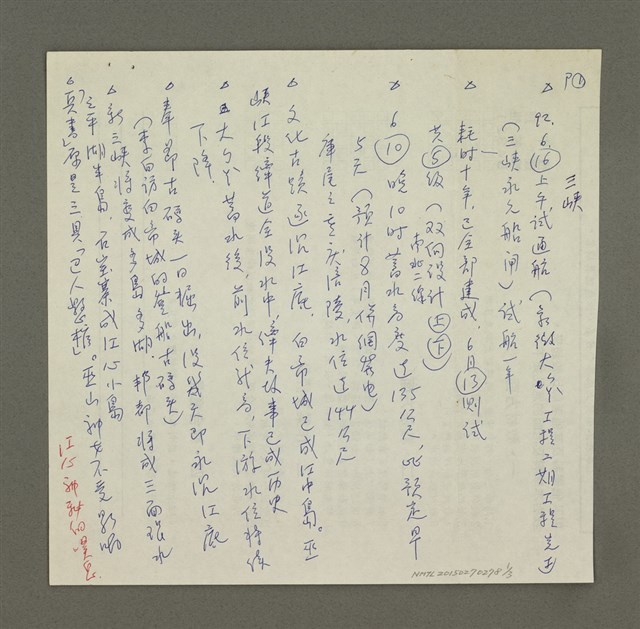 P①
三峽
△ 92.6.⑯上午,試通航(象徵大ㄅㄚˋ工程二期工程完工)
(三峽永久船閘)試航一年
耗时十年,已全部建成。6月⑬測試
共⑤級(双向設計上下)
南北二線
△ 6⑩晚10时蓄水高度達135公尺,比預定早
5天(預計8月併網發电)
庫尾之重庆涪陵,水位達144公尺
△ 文化古蹟逐沉江底。白帝城已成江中島。巫
峽江段縴道全没水中,縴夫故事已成历史
△ 大ㄅㄚˋ蓄水後,前水位升高,下游水位將係
下降。
△ 奉節古碼头一日掘出,没幾天即永沉江底
(来回訪白帝城的登船古碼头)
△ 新三峽將变成多島多湖。邦都將成三面環水
之平湖半島。石宝寨成江心小島
△ 頁書原是三具「巴人懸棺」。巫山神女不受影响
江心神針的嘆息
NMTL20150270278 1/3